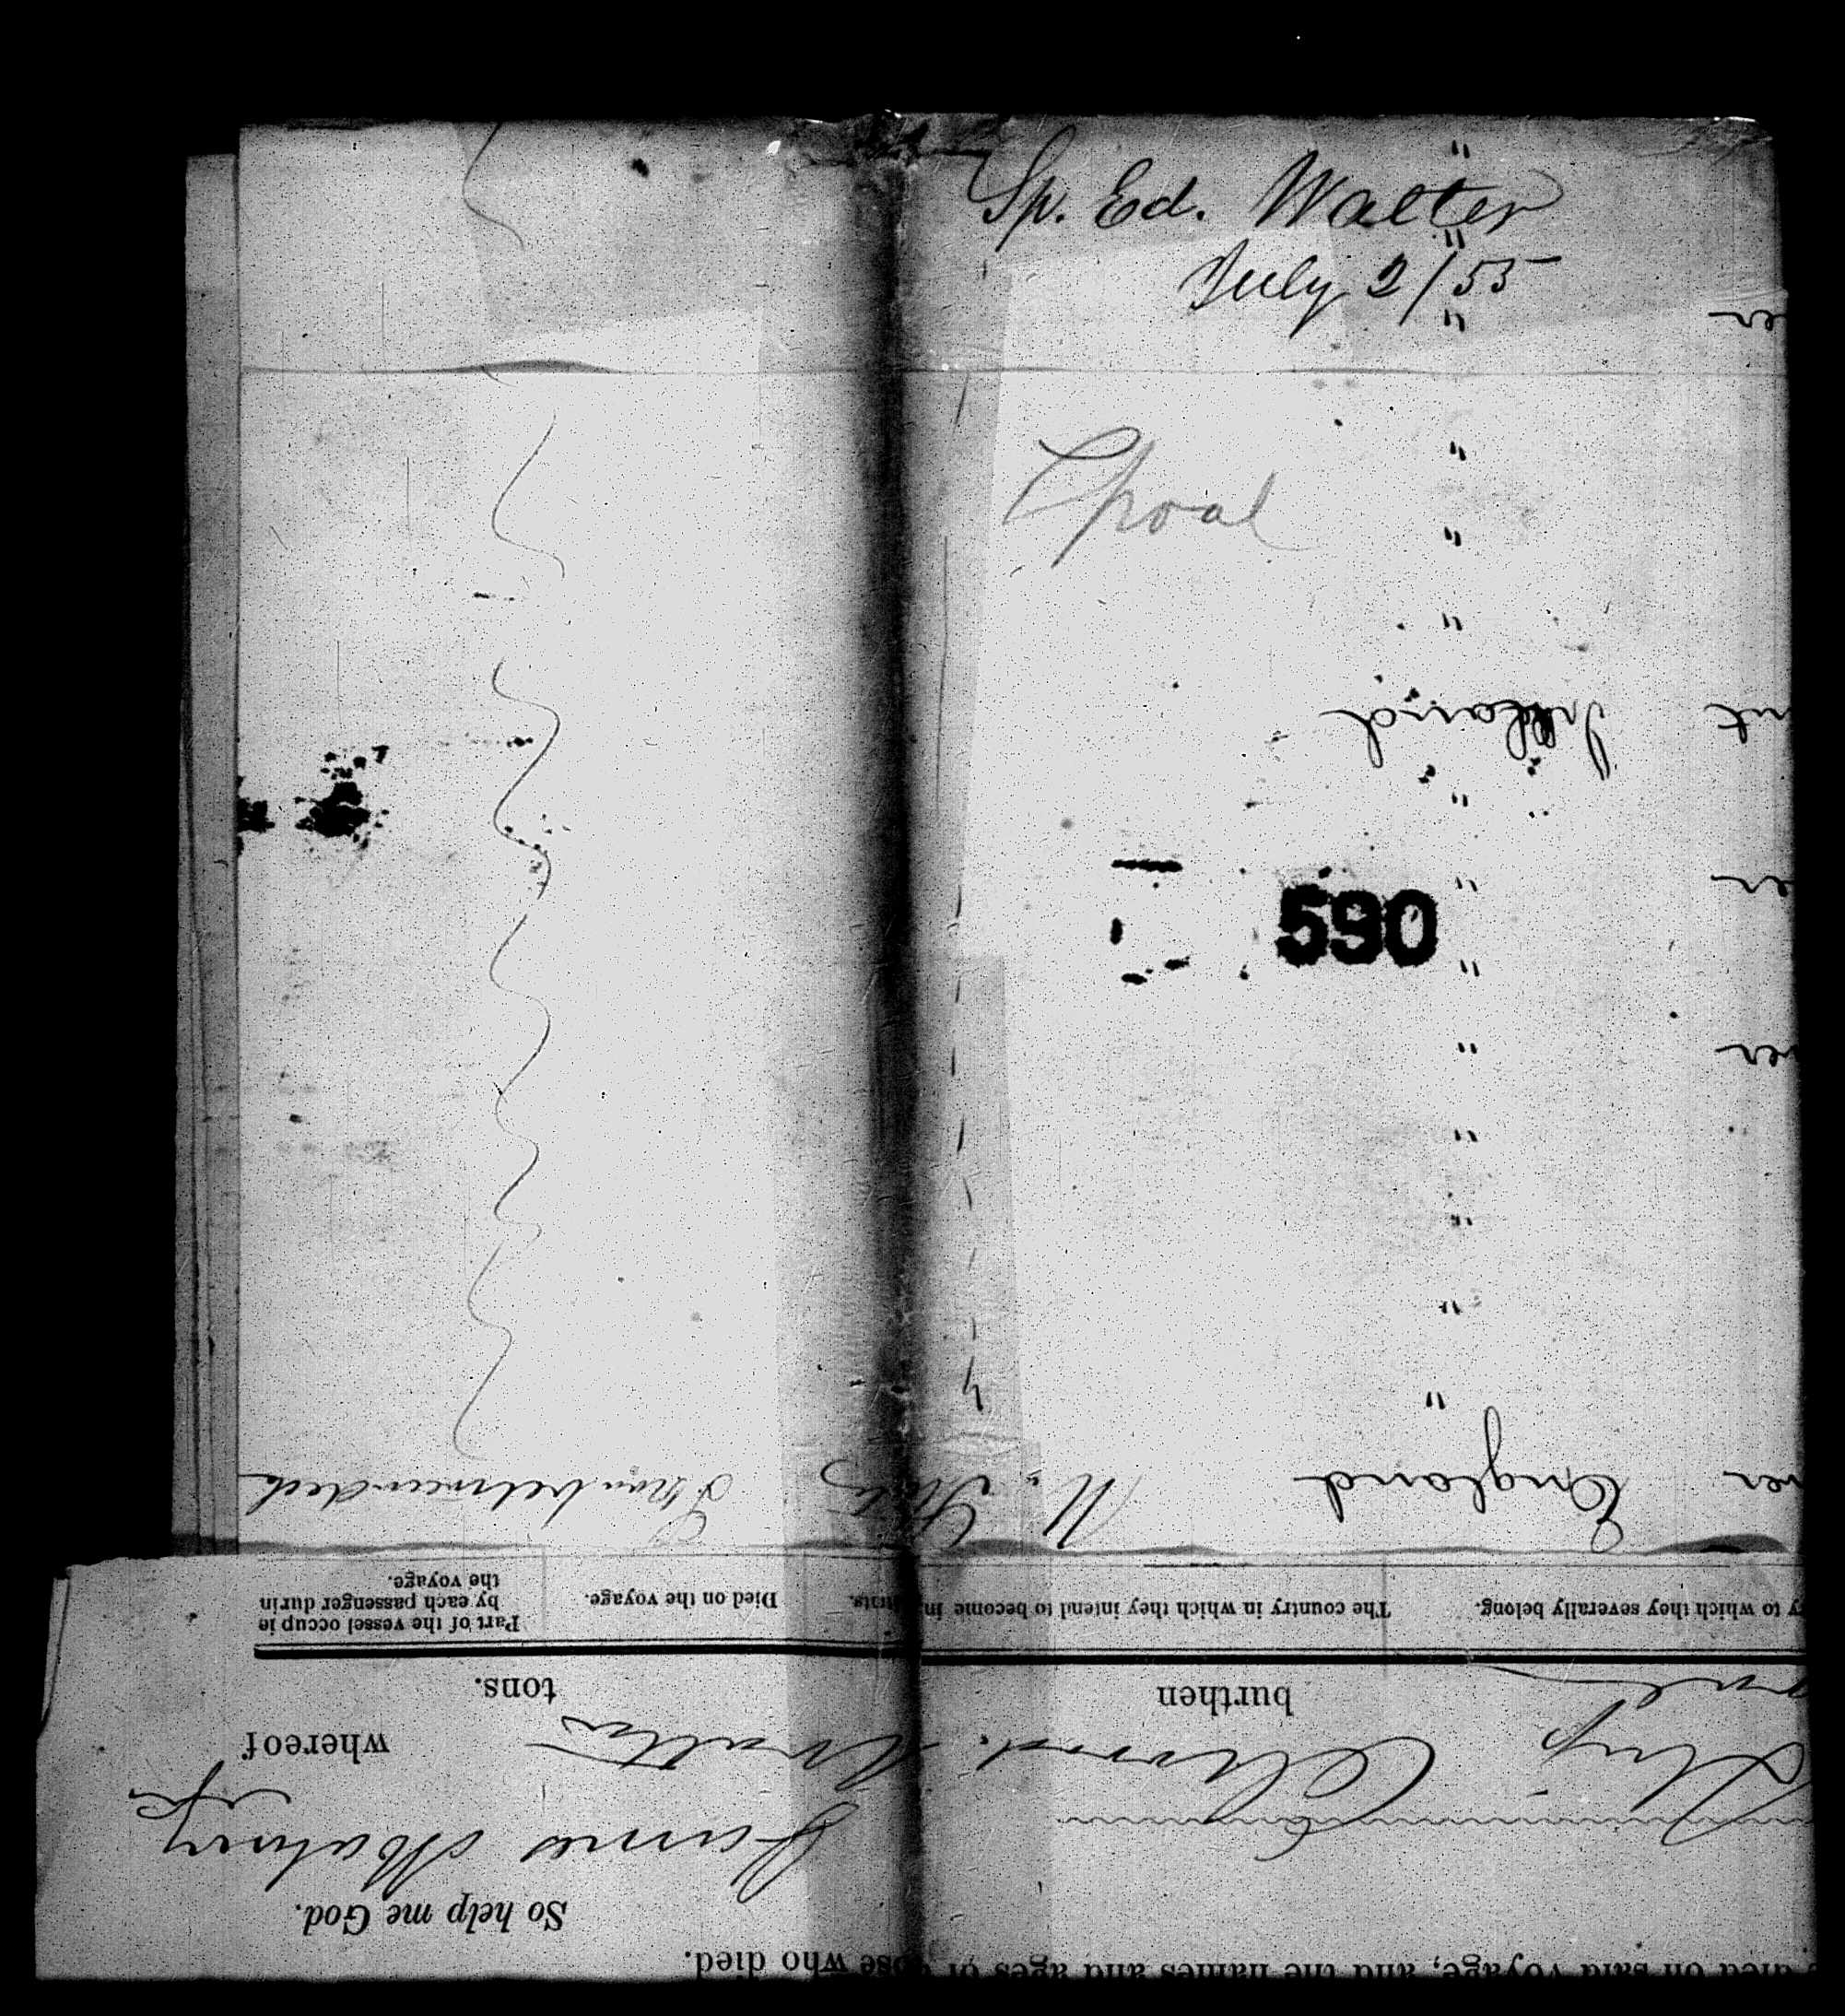 Sp. Ed. Walter
July 2/55
"
"
"
Lpool
"
"
"
Ireland
"
590
"
"
"
"
"
"
"
So help me God.
died on said voyage, and the names and ages of those who died.
James
whereof
Ship Edward Walter
tons.
burthen
y to which they severally belong.
The country in which they intend to become in
Died on the voyage.
Part of the vessel occup ie
by each passenger durin
the voyage.
England
U. States